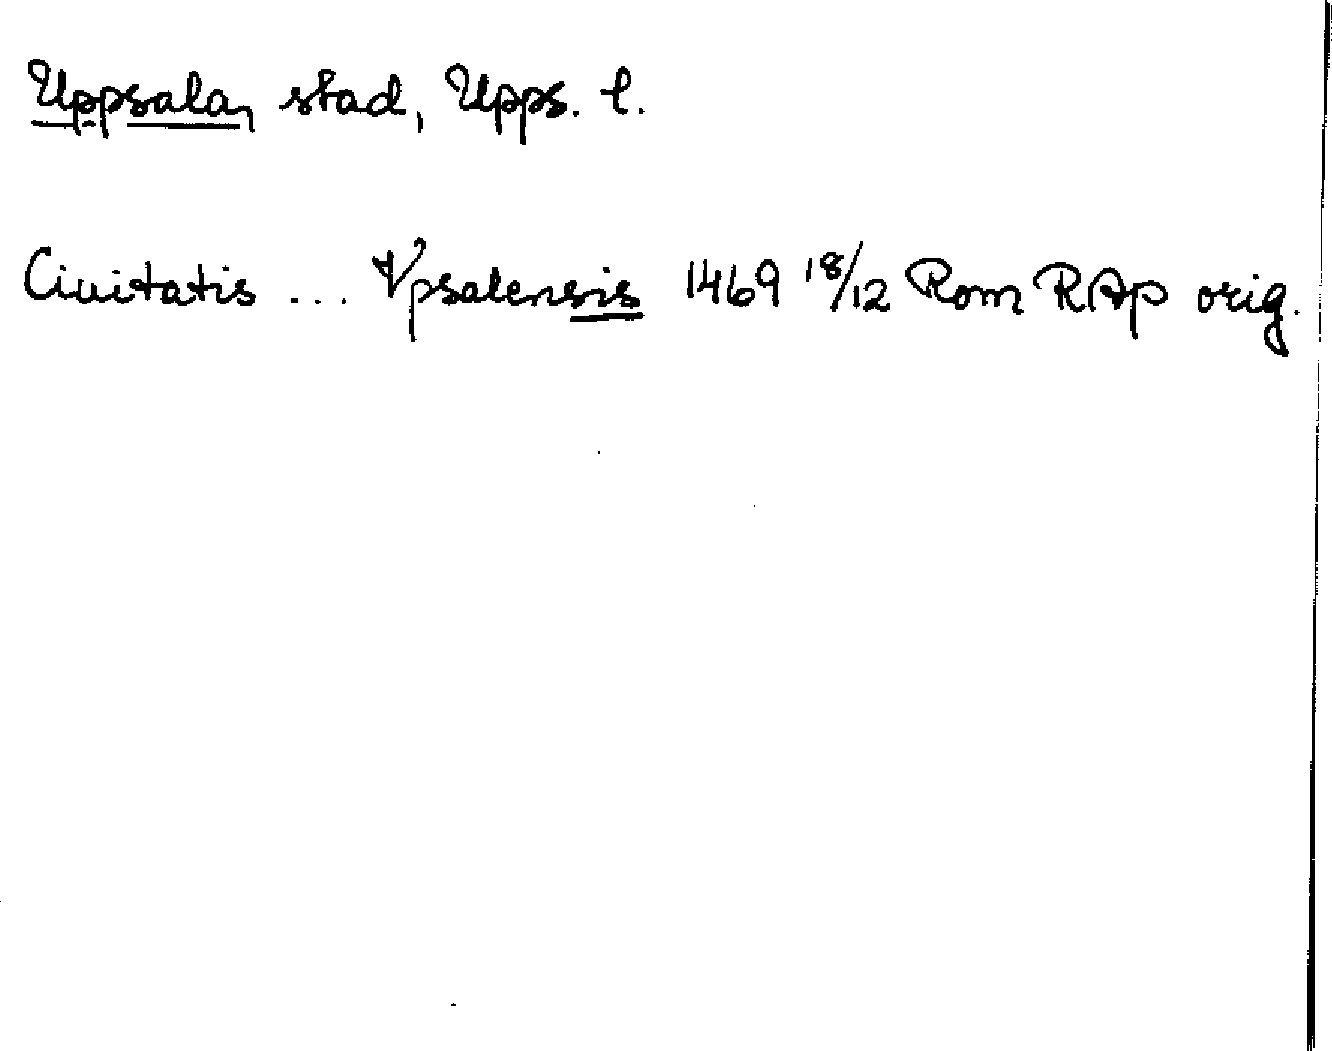 Uppsala, stad, Upps. l.
Ciuitatis ... Vpsalensis 1469 18/12 Rom RAp orig.